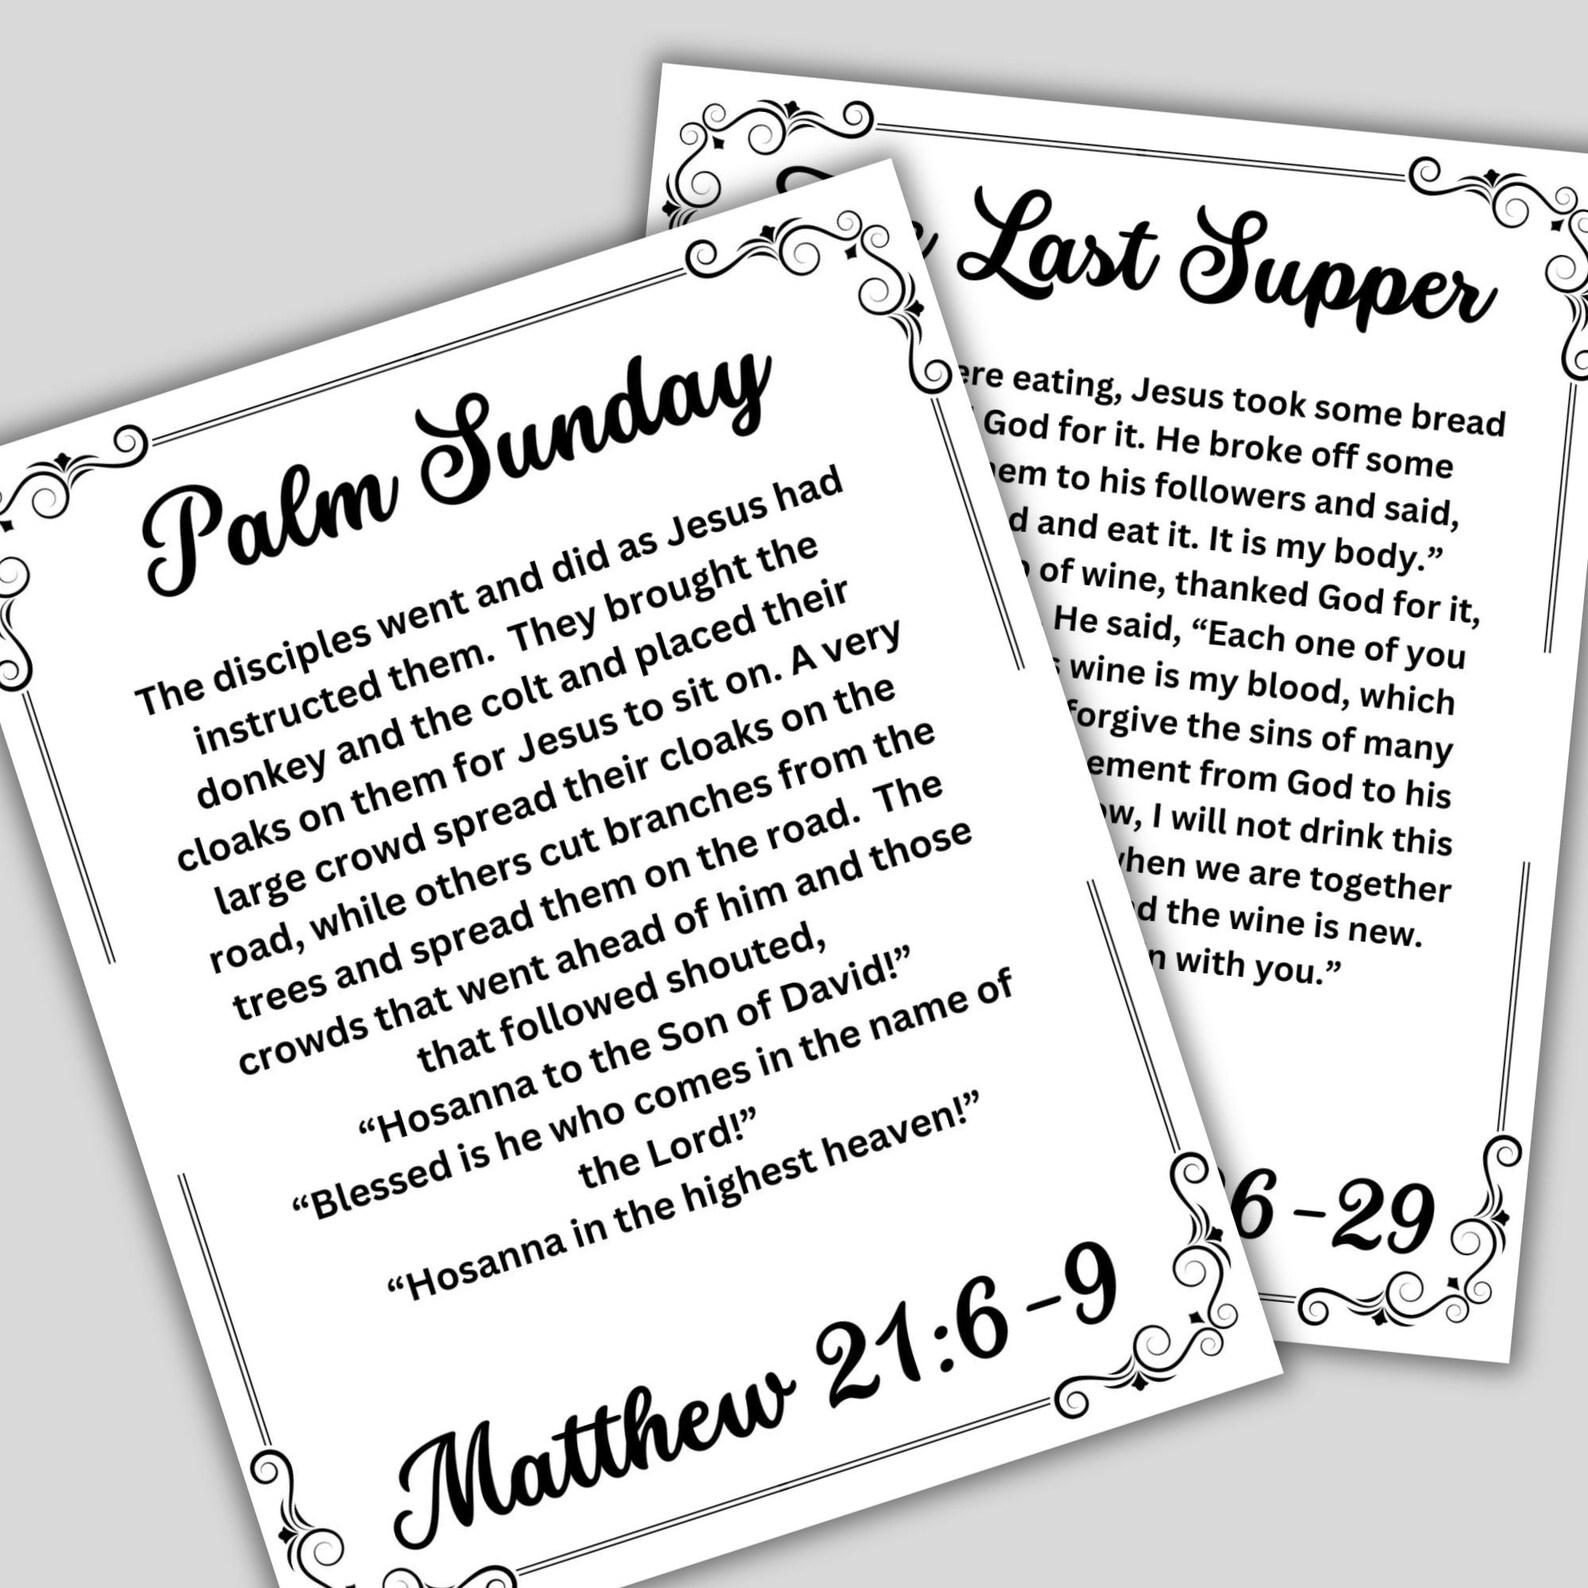 Palm Sunday
The disciples went and did as Jesus had
instructed them. They brought the
donkey and the colt and placed their
cloaks on them for Jesus to sit on. A very
large crowd spread their cloaks on the
road, while others cut branches from the
trees and spread them on the road. The
crowds that went ahead of him and those
that followed shouted,
“Hosanna to the Son of David!”
“Blessed is he who comes in the name of
the Lord!”
“Hosanna in the highest heaven!”
Matthew 21:6-9
Last Supper
eating, Jesus took some bread
God for it. He broke off some
to his followers and said,
and eat it. It is my body.”
of wine, thanked God for it,
He said, “Each one of you
wine is my blood, which
forgive the sins of many
from God to his
I will not drink this
when we are together
the wine is new.
with you.”
6-29